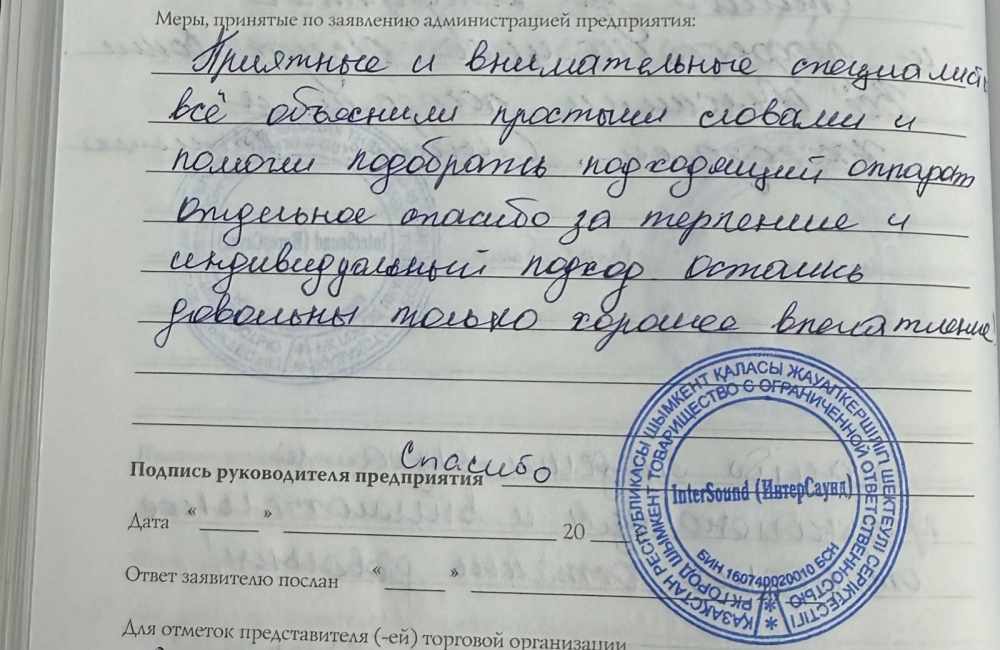 Меры, принятые по заявлению администрацией предприятия:
Приятные и внимательные специалист
всё объяснили простыми словами и
помогли подобрать подходящий аппарат
Отдельное спасибо за терпение и
индивидуальный подход остались
довольны только хорошее впечатление!
Спасибо
Подпись руководителя предприятия
Дата « » 20
Ответ заявителю послан « »
Для отметок представителя (-ей) торговой организации
ҚАЗАҚСТАН РЕСПУБЛИКАСЫ ШЫМКЕНТ ҚАЛАСЫ ЖАУАПКЕРШІЛІГІ ШЕКТЕУЛІ СЕРІКТЕСТІГІ
РК ГОРОД ШЫМКЕНТ ТОВАРИЩЕСТВО С ОГРАНИЧЕННОЙ ОТВЕТСТВЕННОСТЬЮ
InterSound (ИнтерСаунд)
БИН 160740020010 БСН